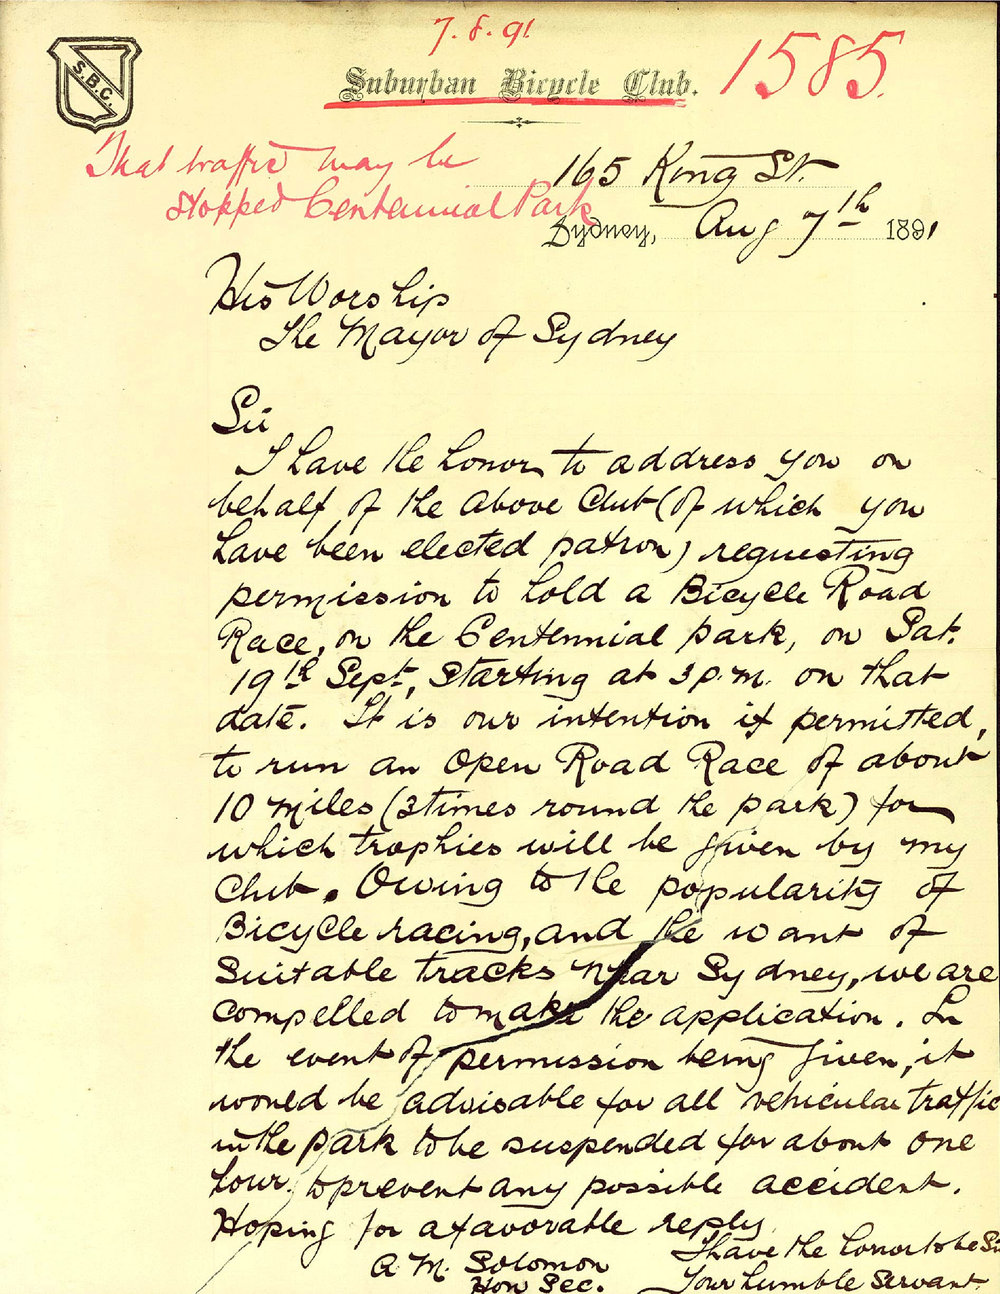 7.8.91
S.B.C.
Suburban Bicycle Club.
1585.
That traffic may be
stopped Centennial Park
165 King St.
Sydney, Aug 7th 1891
His Worship
The Mayor of Sydney
Sir
I have the honor to address you on
behalf of the above Club (of which you
have been elected patron) requesting
permission to hold a Bicycle Road
Race, on the Centennial park, on Sat.
19th Sept, starting at 3 p.m. on that
date. It is our intention if permitted,
to run an Open Road Race of about
10 miles (3 times round the park) for
which trophies will be given by my
Club. Owing to the popularity of
Bicycle racing, and the want of
suitable tracks near Sydney, we are
compelled to make the application. In
the event of permission being given, it
would be advisable for all vehicular traffic
in the park to be suspended for about one
hour, to prevent any possible accident.
Hoping for a favorable reply
I have the honor to be Sir
Your humble servant
A. M. Solomon
Hon Sec.